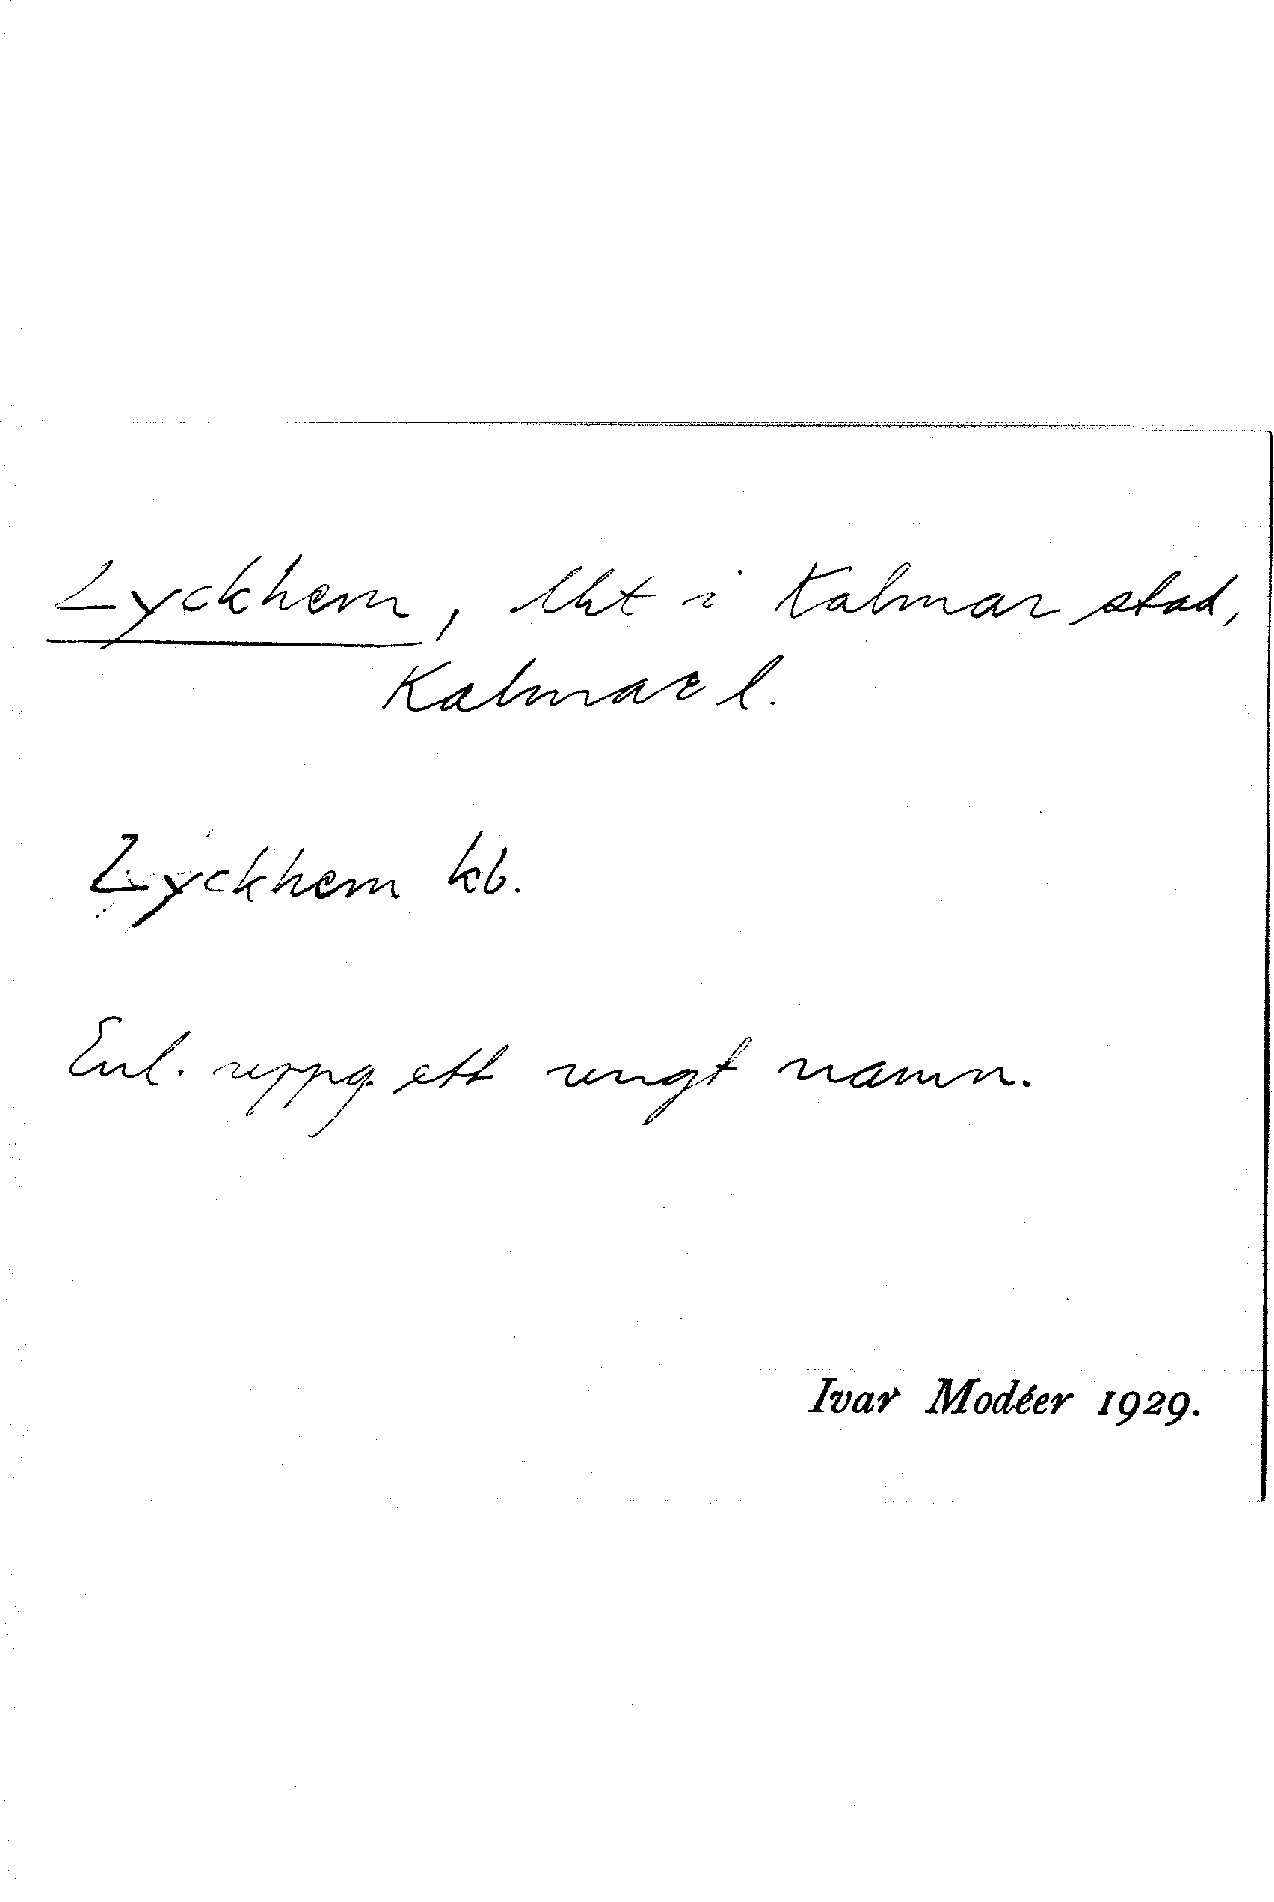 Lyckhem, lht i Kalmar stad,
Kalmar l.
Lyckhem kb.
Enl. uppg. ett ungt namn.
Ivar Modéer 1929.